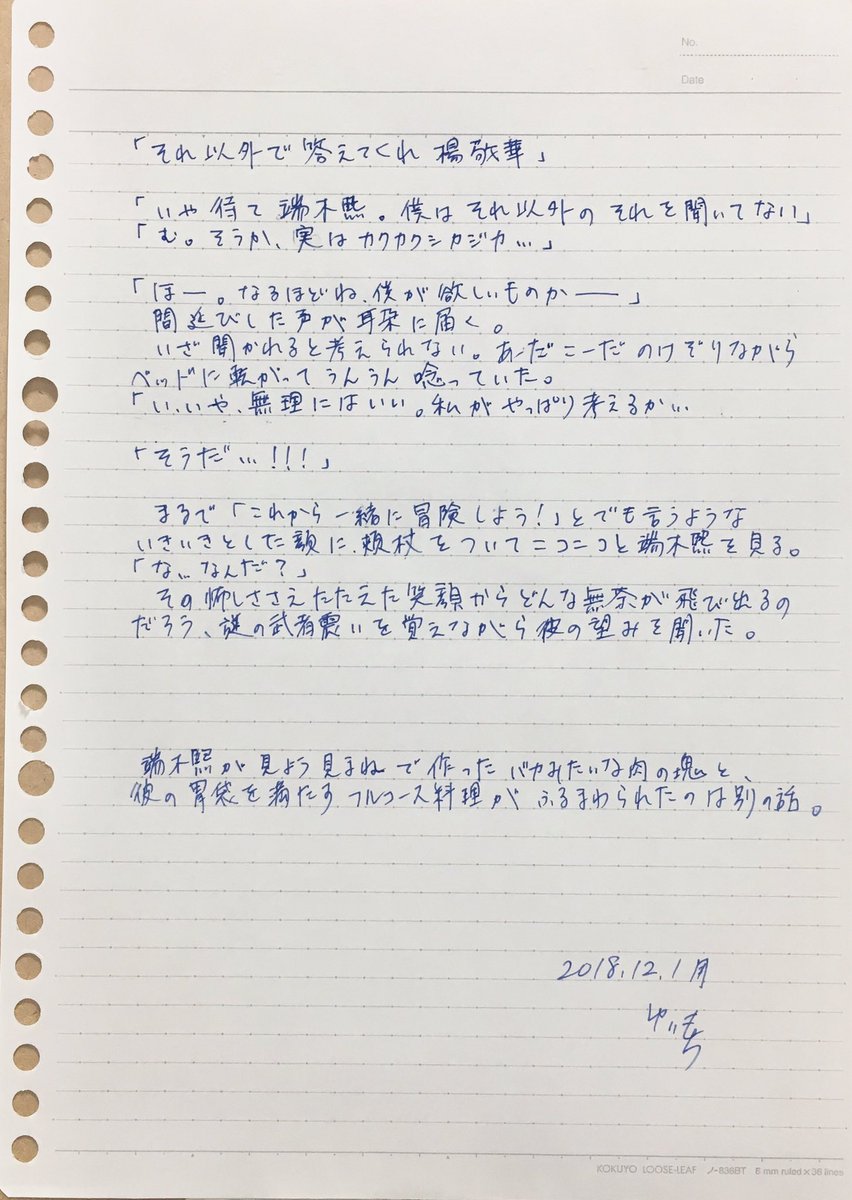 No.
Date
「それ以外で答えてくれ 楊敬華」
「いや待て 端木熙。僕は それ以外の それを聞いてない」
「む。そうか、実は カクカクシカジカ…」
「ほー。なるほどね、僕が欲しいものかー」
間延びした声が耳朶に届く。
いざ聞かれると考えられない。あーだこーだ のけぞりながら
ベッドに転がって うんうん 唸っていた。
「い、いや、無理にはいい。私が やっぱり考えるか…
「そうだ…!!!」
まるで「これから一緒に冒険しよう!」とでも言うような
いきいきとした顔に、頬杖をついてニコニコと端木熙を見る。
「な…なんだ?」
その怖しささえたたえた笑顔からどんな無茶が飛び出るの
だろう、謎の武者震いを覚えながら彼の望みを聞いた。
端木熙が見よう見まねで作った バカみたいな肉の塊と、
彼の胃袋を満たす フルコース料理が ふるまわられたのは別の話。
2018.12.1
KOKUYO LOOSE-LEAF ノ-836BT 6 mm ruled×36 lines